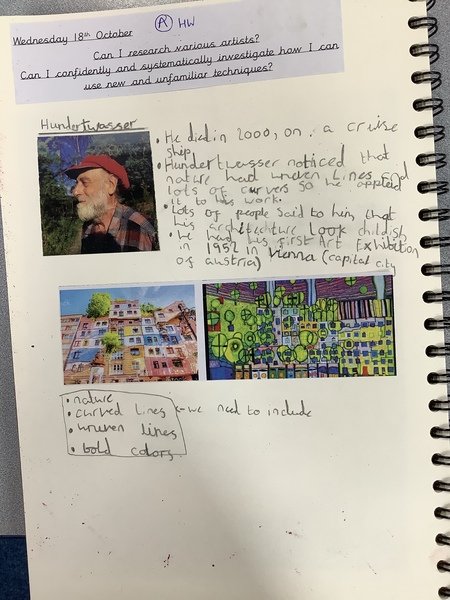 Wednesday 18th October
A HW
Can I research various artists?
Can I confidently and systematically investigate how I can
use new and unfamiliar techniques?
Hundertwasser
• He died in 2000, on. a cruise
ship.
• Hundertwasser noticed that
nature had unven lines and
lots of curvers so he applied
it to his work.
• Lots of people said to him that
his architechture look childish
• he had his first Art Exhibition
in 1952 in Vienna (capital city
of austria)
• nature
• curved lines
• unuven lines
• bold colors
we need to include